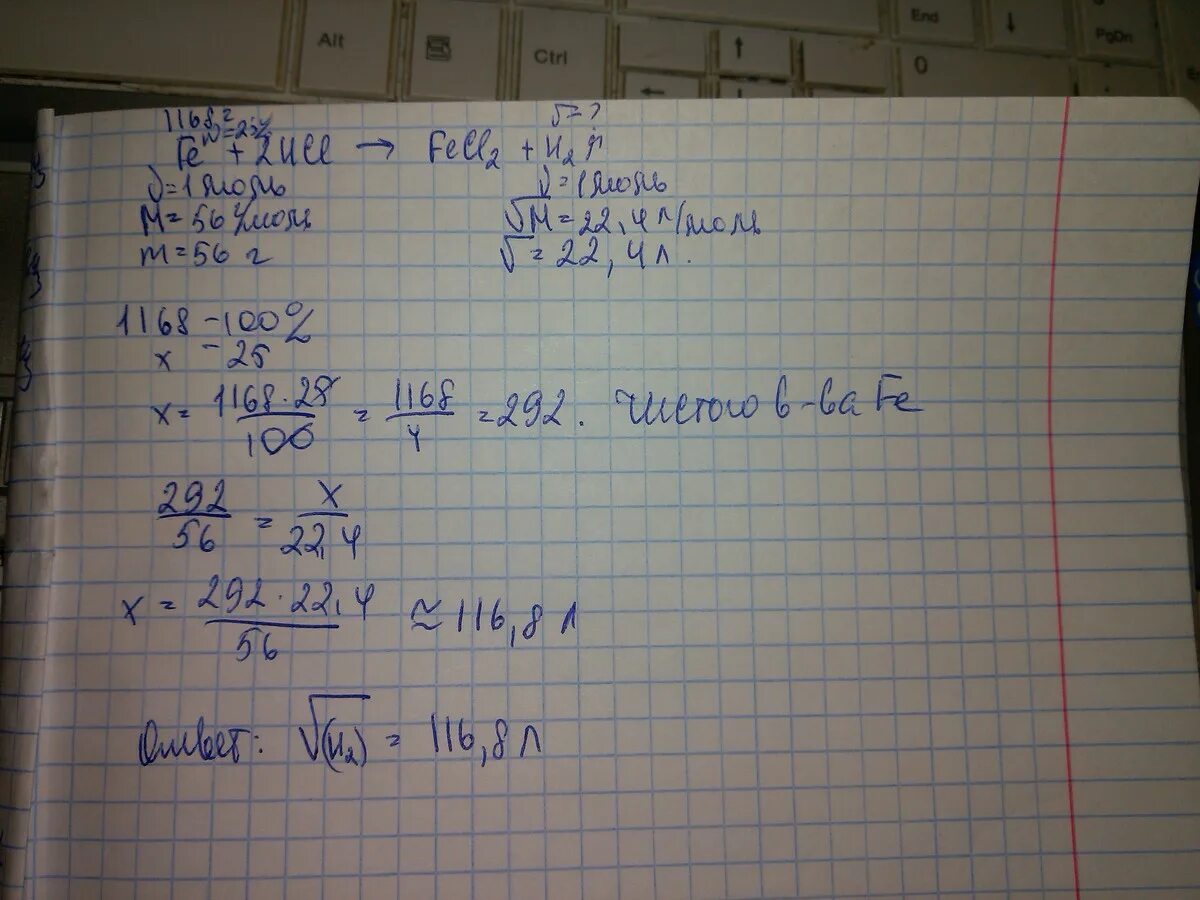 Alt
Ctrl
End
PgDn
0
↑
↓
←
1168 г
V=?
Fe + 2HCl → FeCl₂ + H₂↑
ν=1 моль
ν=1 моль
M=56 г/моль
VM=22,4 л/моль
m=56 г
V=22,4 л.
1168 – 100%
x – 25
x = 1168·25/100 = 1168/4 = 292. Чистого в-ва Fe
292/56 = x/22,4
x = 292·22,4/56 ≈ 116,8 л
Ответ: V(H₂) = 116,8 л